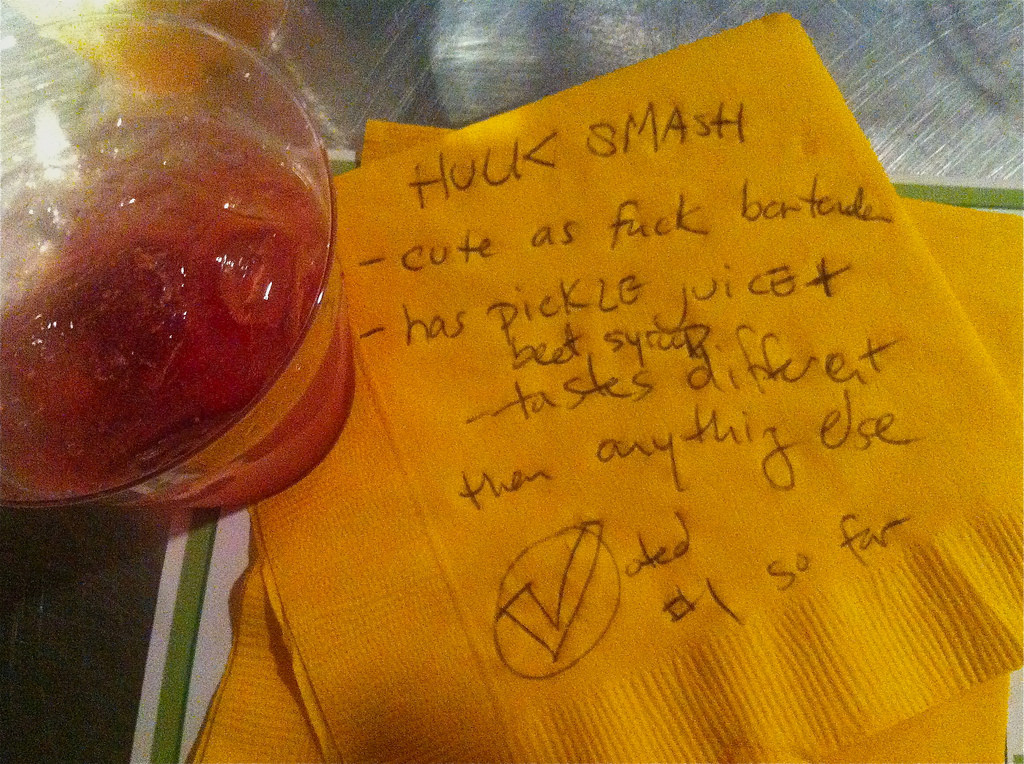 HULK SMASH
- cute as fuck bartender
- has PICKLE juice +
beet syrup.
- tastes different
then anything else
Voted
#1 so far